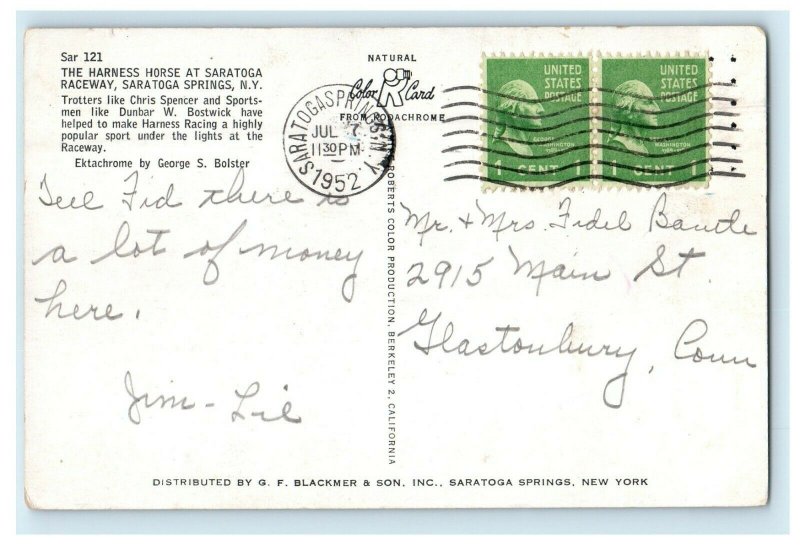 Sar 121
THE HARNESS HORSE AT SARATOGA
RACEWAY, SARATOGA SPRINGS, N.Y.
Trotters like Chris Spencer and Sports-
men like Dunbar W. Bostwick have
helped to make Harness Racing a highly
popular sport under the lights at the
Raceway.
Ektachrome by George S. Bolster
Tell Fid there is
a lot of money
here.
Jim - Lil
NATURAL
Color Card
FROM KODACHROME
SARATOGA SPRINGS, N.Y.
JUL 7
11 30 PM
1952
UNITED
STATES
POSTAGE
GEORGE
WASHINGTON
1 CENT 1
UNITED
STATES
POSTAGE
WASHINGTON
1 CENT 1
Mr. + Mrs. Fidel
2915 Main St.
Glastonbury, Conn
ROBERTS COLOR PRODUCTION, BERKELEY 2, CALIFORNIA
DISTRIBUTED BY G. F. BLACKMER & SON, INC., SARATOGA SPRINGS, NEW YORK